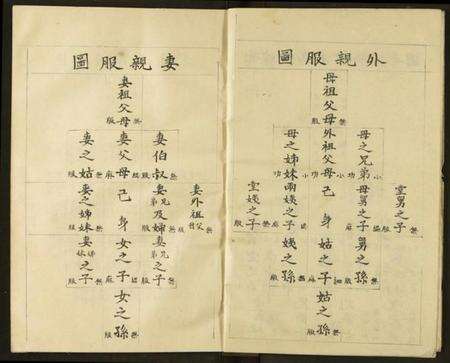 外親服圖
母祖父母
無服
母之兄弟
小功
外祖父母
小功
母之姊妹
小功
堂舅之子
無服
母舅之子
緦麻
己身
兩姨之子
緦麻
堂姨之子
無服
舅之孫
無服
姑之子
緦麻
姨之孫
無服
姑之孫
無服
妻親服圖
妻祖父母
無服
妻伯叔
無服
妻父母
緦麻
妻之姑
無服
妻外祖父母
無服
妻兄弟及婦
無服
己身
妻之姊妹
無服
妻兄弟之子
無服
女之子
緦麻
妻姊妹之子
無服
女之孫
無服